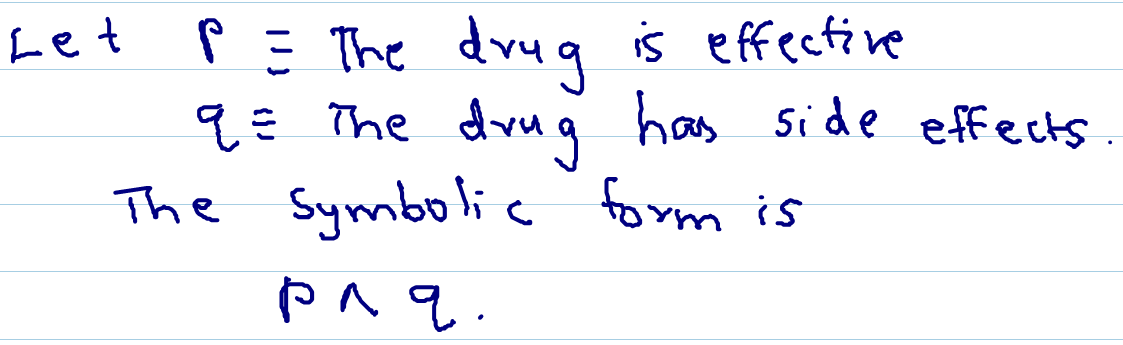 Let p ≡ The drug is effective
q ≡ The drug has side effects.
The symbolic form is
p ∧ q.